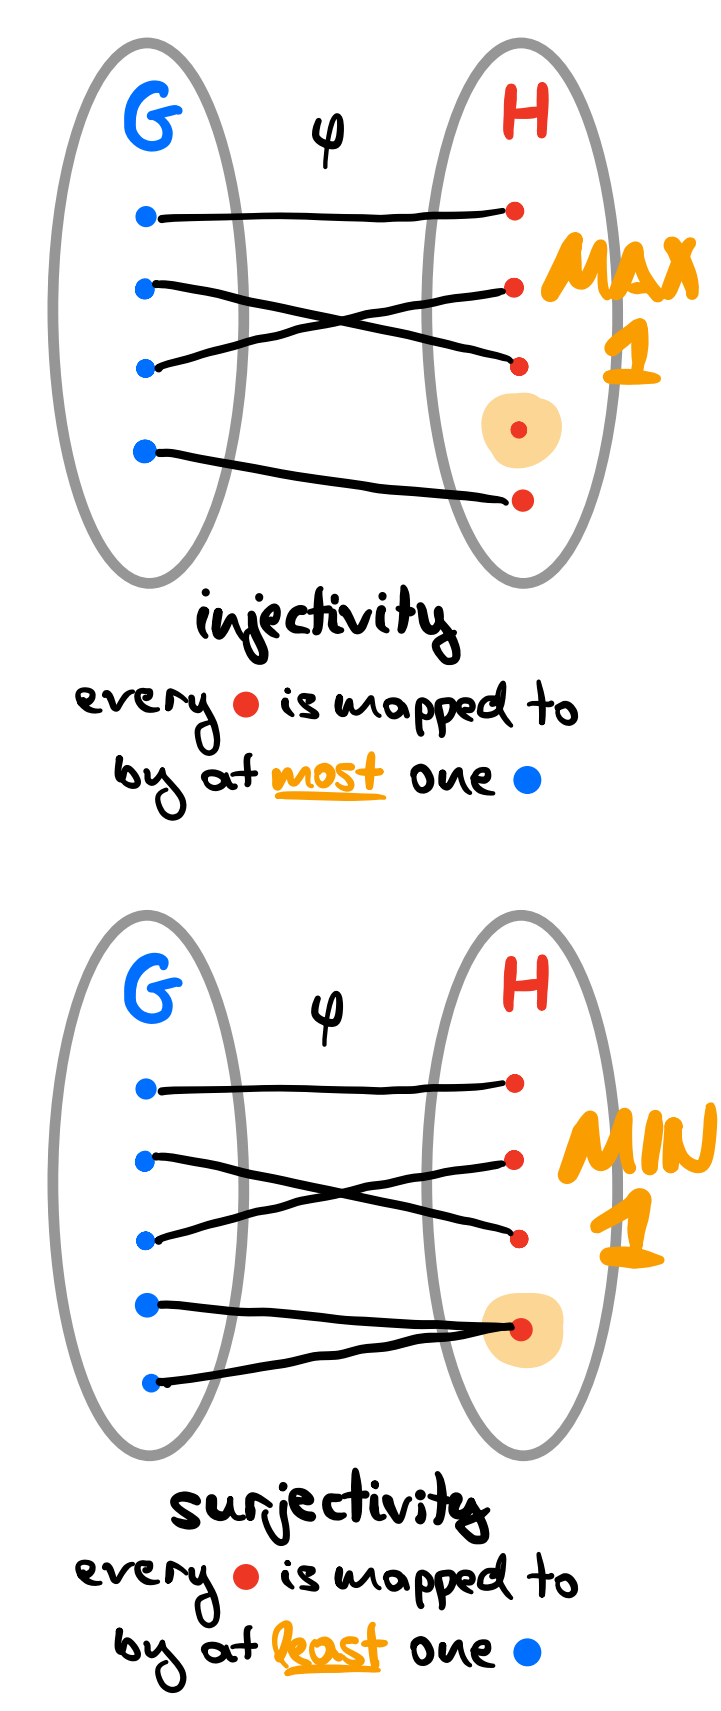 G
H
φ
MAX
1
injectivity
every is mapped to
by at most one
G
H
φ
MIN
1
surjectivity
every is mapped to
by at least one